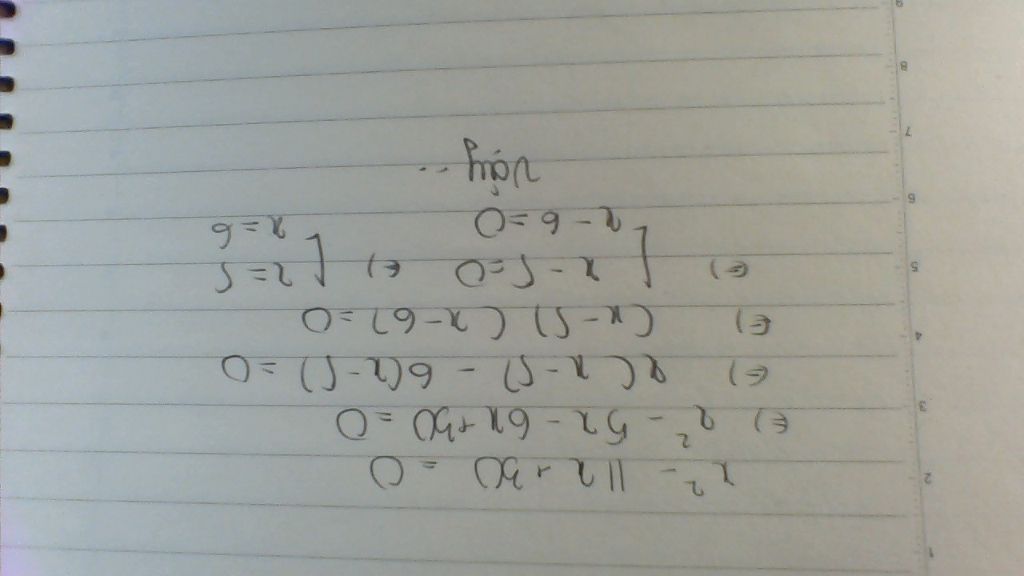 x² - 11x + 30 = 0
(=) x² - 5x - 6x + 30 = 0
(=) x(x - 5) - 6(x - 5) = 0
(=) (x - 5) (x - 6) = 0
(=) [ x - 5 = 0 (=) [ x = 5
x - 6 = 0 x = 6
Vậy ...
1
2
3
4
5
6
7
8
9